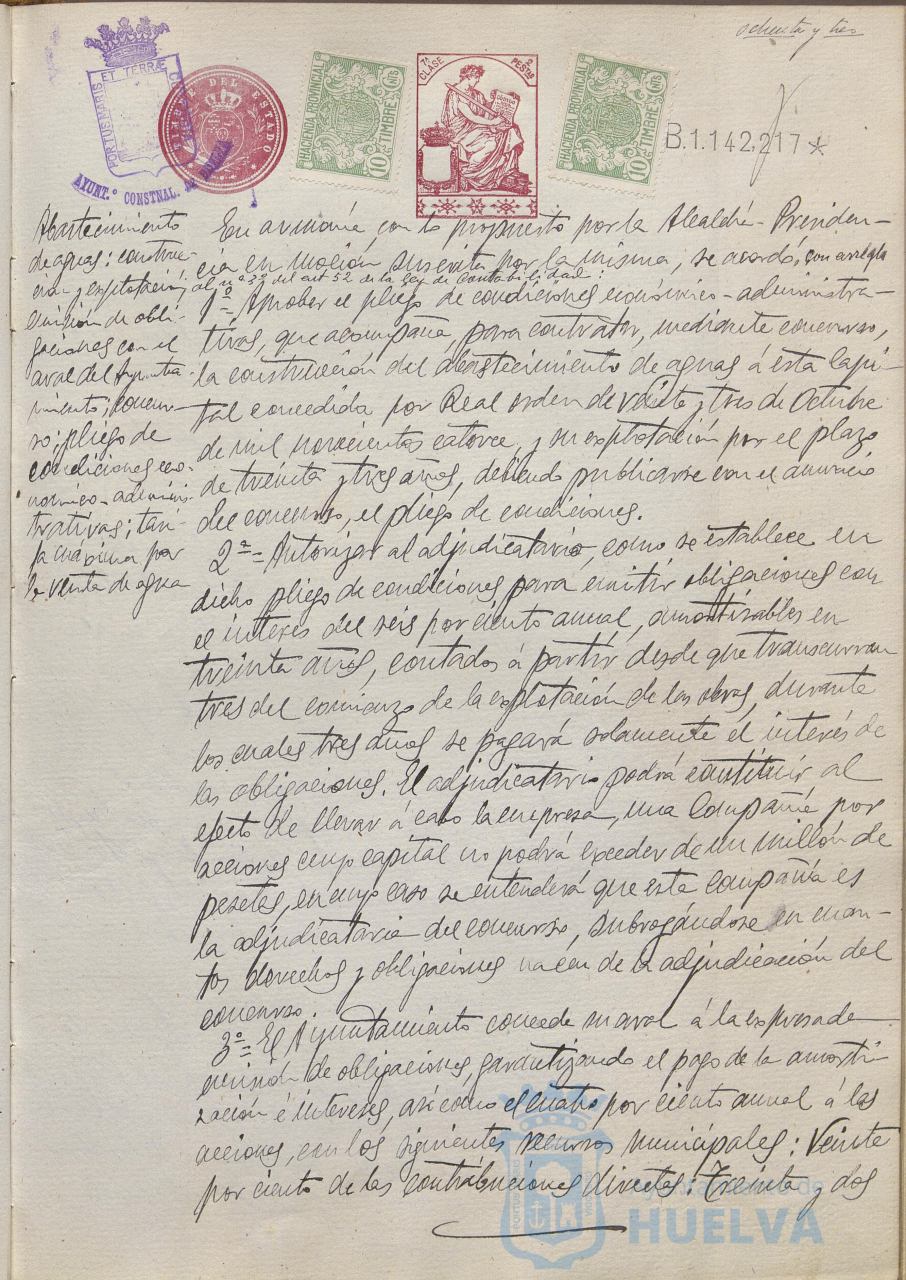 ochenta y tres
PORTUS MARIS ET TERRÆ CUSTODIA
AYUNT.º CONSTNAL. DE HUELVA
TIMBRE DEL ESTADO
HACIENDA PROVINCIAL
10 CTS
TIMBRE
7ª CLASE
2 PESETAS
HACIENDA PROVINCIAL
10 CTS
TIMBRE
B.1.142.217*
Abastecimiento
de aguas: construc-
ción y explotación;
emisión de obli-
gaciones con el
aval del Ayunta-
miento; concur-
so; pliego de
condiciones eco-
nómico-adminis-
trativas; tari-
fa máxima por
la venta de agua
En armonía con lo propuesto por la Alcaldía-Presiden-
cia en moción suscrita por la misma, se acordó, con arreglo
al nº 3º del art. 52 de la Ley de Contabilidad:
1º= Aprobar el pliego de condiciones económico-administra-
tivas, que acompaña, para contratar, mediante concurso,
la construcción del abastecimiento de aguas á esta Capi-
tal concedida por Real orden de veinte y tres de Octubre
de mil novecientos catorce, y su explotación por el plazo
de treinta y tres años, debiendo publicarse con el anuncio
del concurso, el pliego de condiciones.
2º= Autorizar al adjudicatario, como se establece en
dicho pliego de condiciones para emitir obligaciones con
el interés del seis por ciento anual, amortizables en
treinta años, contados á partir desde que transcurran
tres del comienzo de la explotación de las obras, durante
los cuales tres años se pagará solamente el interés de
las obligaciones. El adjudicatario podrá constituir al
efecto de llevar á cabo la empresa, una Compañía por
acciones cuyo capital no podrá exceder de un millón de
pesetas, en cuyo caso se entenderá que esta Compañía es
la adjudicataria del concurso, subrogándose en cuan-
tos derechos y obligaciones nacen de la adjudicación del
concurso.
3º= El Ayuntamiento concede su aval á la expresada
emisión de obligaciones, garantizando el pago de la amorti-
zación é intereses, así como el cuatro por ciento anual á las
acciones, con los siguientes recursos municipales: Veinte
por ciento de las contribuciones directas: Treinta y dos
Ayuntamiento de
HUELVA